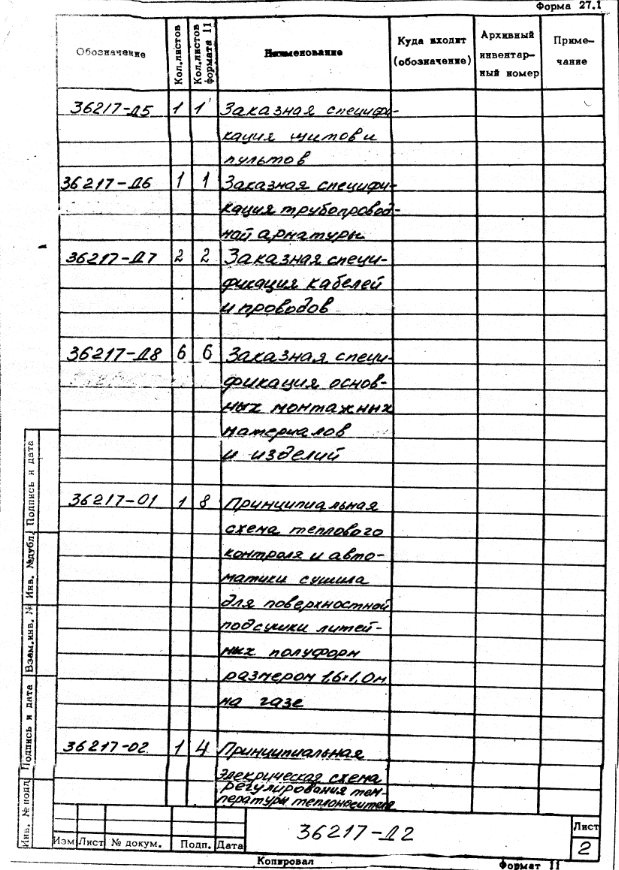 Форма 27.1
Обозначение Кол.листов Кол.листов формата 11 Наименование Куда входит (обозначение) Архивный инвентарный номер Примечание
36217-Д5 1 1 Заказная специфи-
кация щитов и
пультов
36217-Д6 1 1 Заказная специфи-
кация трубопровод-
ной арматуры
36217-Д7 2 2 Заказная специ-
фикация кабелей
и проводов
36217-Д8 6 6 Заказная специ-
фикация основ-
ных монтажных
материалов
и изделий
36217-01 1 8 Принципиальная
схема теплового
контроля и авто-
матики сушила
для поверхностной
подсушки литей-
ных полуформ
размером 1,6х1,0м
на газе
36217-02 1 4 Принципиальная
электрическая схема
регулирования тем-
пературы теплоносителя
Инв. № подл Подпись и дата Взам.инв. № Инв. №дубл. Подпись и дата
Изм Лист № докум. Подп. Дата
36217-Д2
Лист
2
Копировал Формат 11